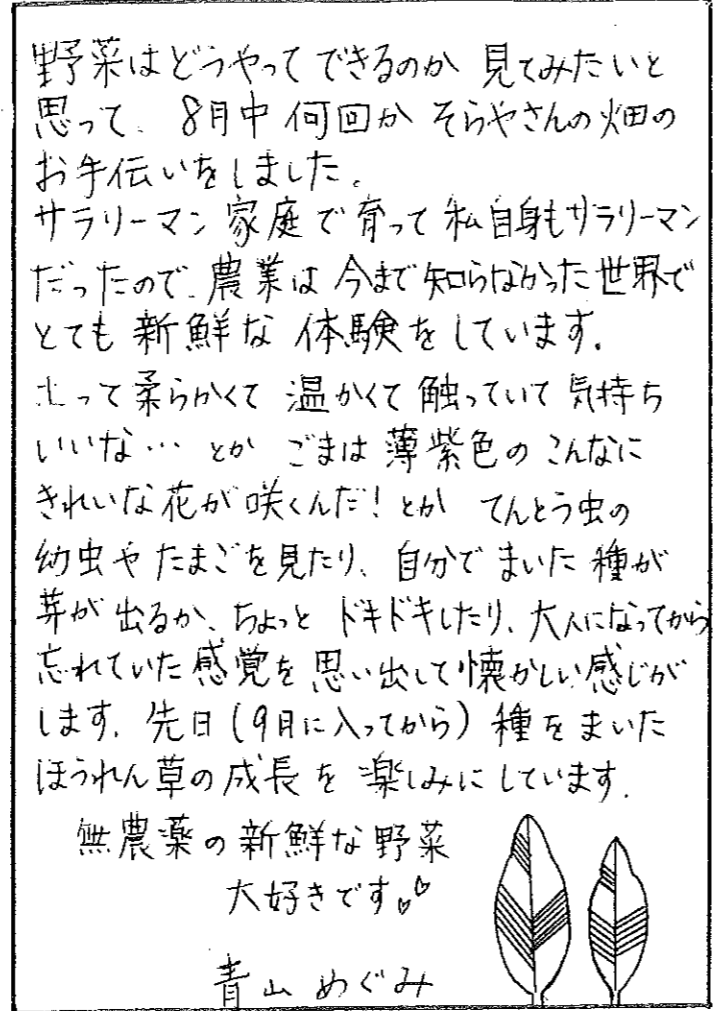 野菜はどうやってできるのか 見てみたいと
思って、8月中 何回か そらやさんの畑の
お手伝いをしました。
サラリーマン家庭で育って私自身もサラリーマン
だったので、農業は今まで知らなかった世界で
とても新鮮な体験をしています。
土って柔らかくて 温かくて 触っていて 気持ち
いいな… とか ごまは薄紫色の こんなに
きれいな花が咲くんだ!とか てんとう虫の
幼虫やたまごを見たり、自分でまいた種が
芽が出るか、ちょっとドキドキしたり、大人になってから
忘れていた感覚を思い出して懐かしい感じが
します。先日(9月に入ってから)種をまいた
ほうれん草の成長を楽しみにしています。
無農薬の新鮮な野菜
大好きです♡♡
青山めぐみ